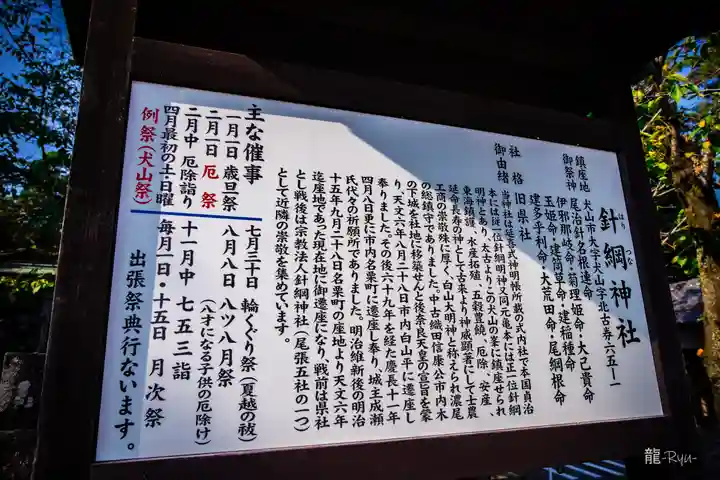 針綱神社
はり つな
鎮座地 犬山市大字犬山字北古券六五ノ一
御祭神 尾治針名根連命
伊邪那岐命・菊理姫命・大己貴命
玉姫命・建筒草命・建稲種命
建多乎利命・大荒田命・尾綱根命
社格 旧県社
御由緒 当神社は延喜式神明帳所載の式内社で本国貞治
本には従一位針綱明神又同元亀本には正一位針綱
明神とあり、太古よりこの犬山の峯に鎮座せられ
東海鎮護、水産拓殖、五穀豊饒、厄除、安産、
延命長寿の神として古来より神威顕著にして士農
工商の崇敬殊に厚く、白山大明神と称えられ濃尾
の総鎮守でありました。中古織田信康公市内木
の下城を社地に移築せんと後奈良天皇の宣旨を蒙
り、天文六年八月二十八日市内白山平に遷座し
奉りました。その後六十九年を経た慶長十一年
四月八日更に市内名栗町に遷座し奉り、城主成瀬
氏代々の祈願所でありました。明治維新後の明治
十五年九月二十八日名栗町の座地より天文六年
迄座地であった現在地に御遷座になり、戦前は県社
とし戦後は宗教法人針綱神社(尾張五社の一つ)
として近隣の崇敬を集めています。
主な催事
一月一日 歳旦祭
二月一日 厄祭
二月中 厄除詣り
四月最初の土・日曜
例祭(犬山祭)
七月三十日 輪くぐり祭(夏越の祓)
八月八日 八ツ八月祭
(八才になる子供の厄除け)
十一月中 七五三詣
毎月一日・十五日 月次祭
出張祭典行ないます。
龍-Ryu-